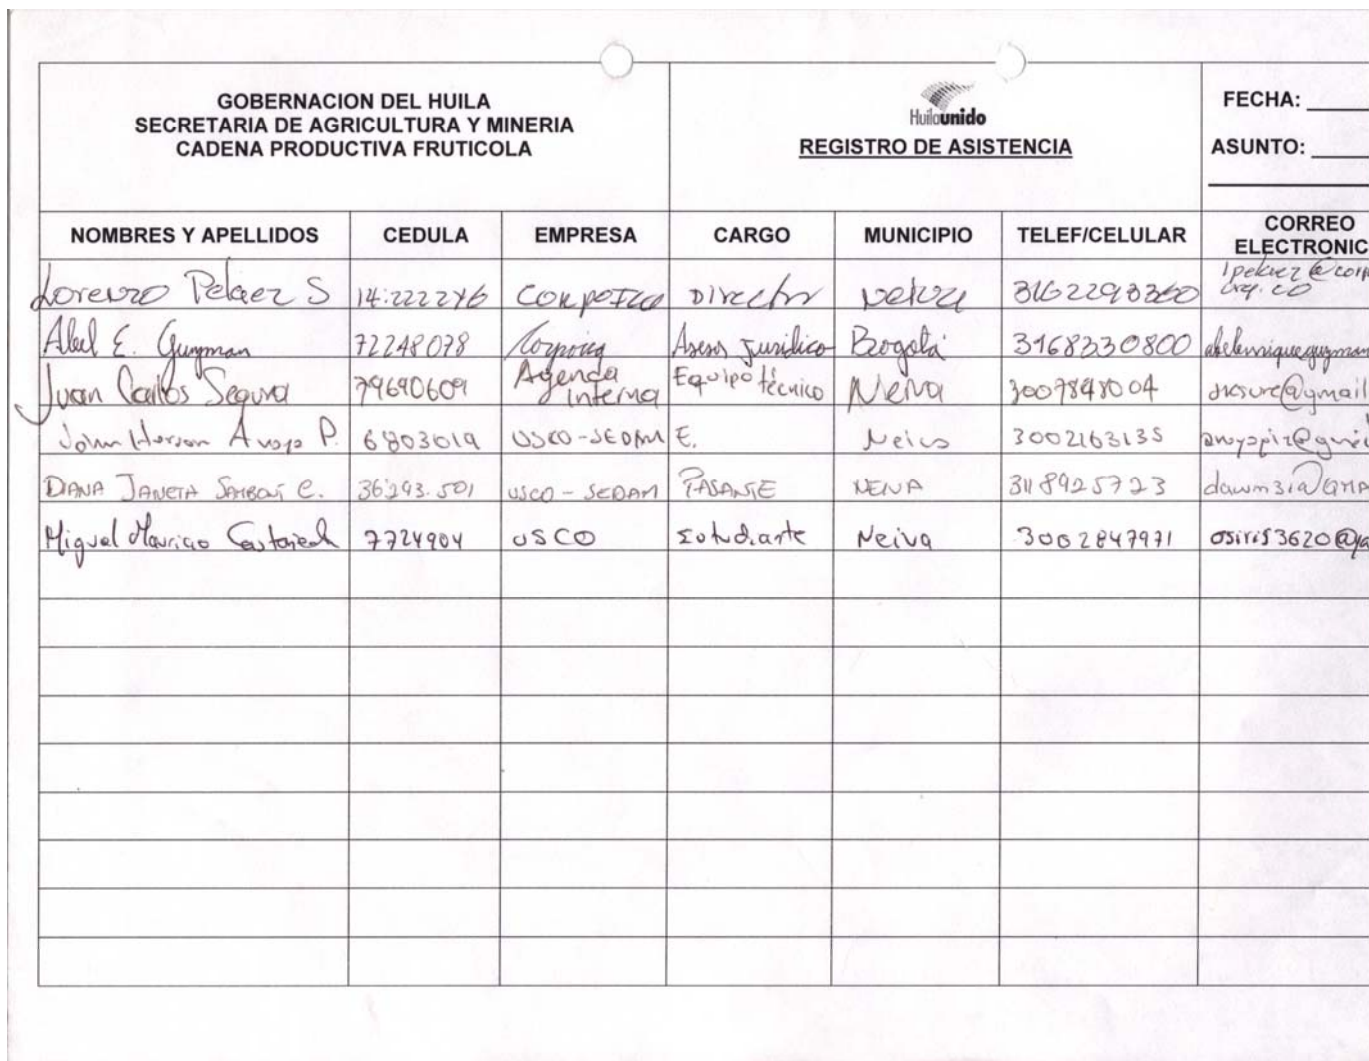 GOBERNACION DEL HUILA
SECRETARIA DE AGRICULTURA Y MINERIA
CADENA PRODUCTIVA FRUTICOLA
Huilaunido
REGISTRO DE ASISTENCIA
FECHA:
ASUNTO:
NOMBRES Y APELLIDOS CEDULA EMPRESA CARGO MUNICIPIO TELEF/CELULAR CORREO ELECTRONIC
Lorenzo Pelaez S 14.222276 CORPOICA Director Neiva 3162298360 lpelaez@corp
Abel E. Guzman 72248078 Corpoica Asesor Juridico Bogotá 3168330800 abelenriqueguzman
Juan Carlos Segura 79690609 Agenda interna Equipo técnico Neiva 3007848004 @gmail
John Herson Anaya P. 6803019 USCO-SEDAM E. Neiva 3002163135
DIANA JANETH SAMBONI C. 36293.501 USCO - SEDAM PASANTE NEIVA 3118925723
Miguel Mauricio Castañeda 7724904 USCO Estudiante Neiva 3002847971 osiris3620@ya